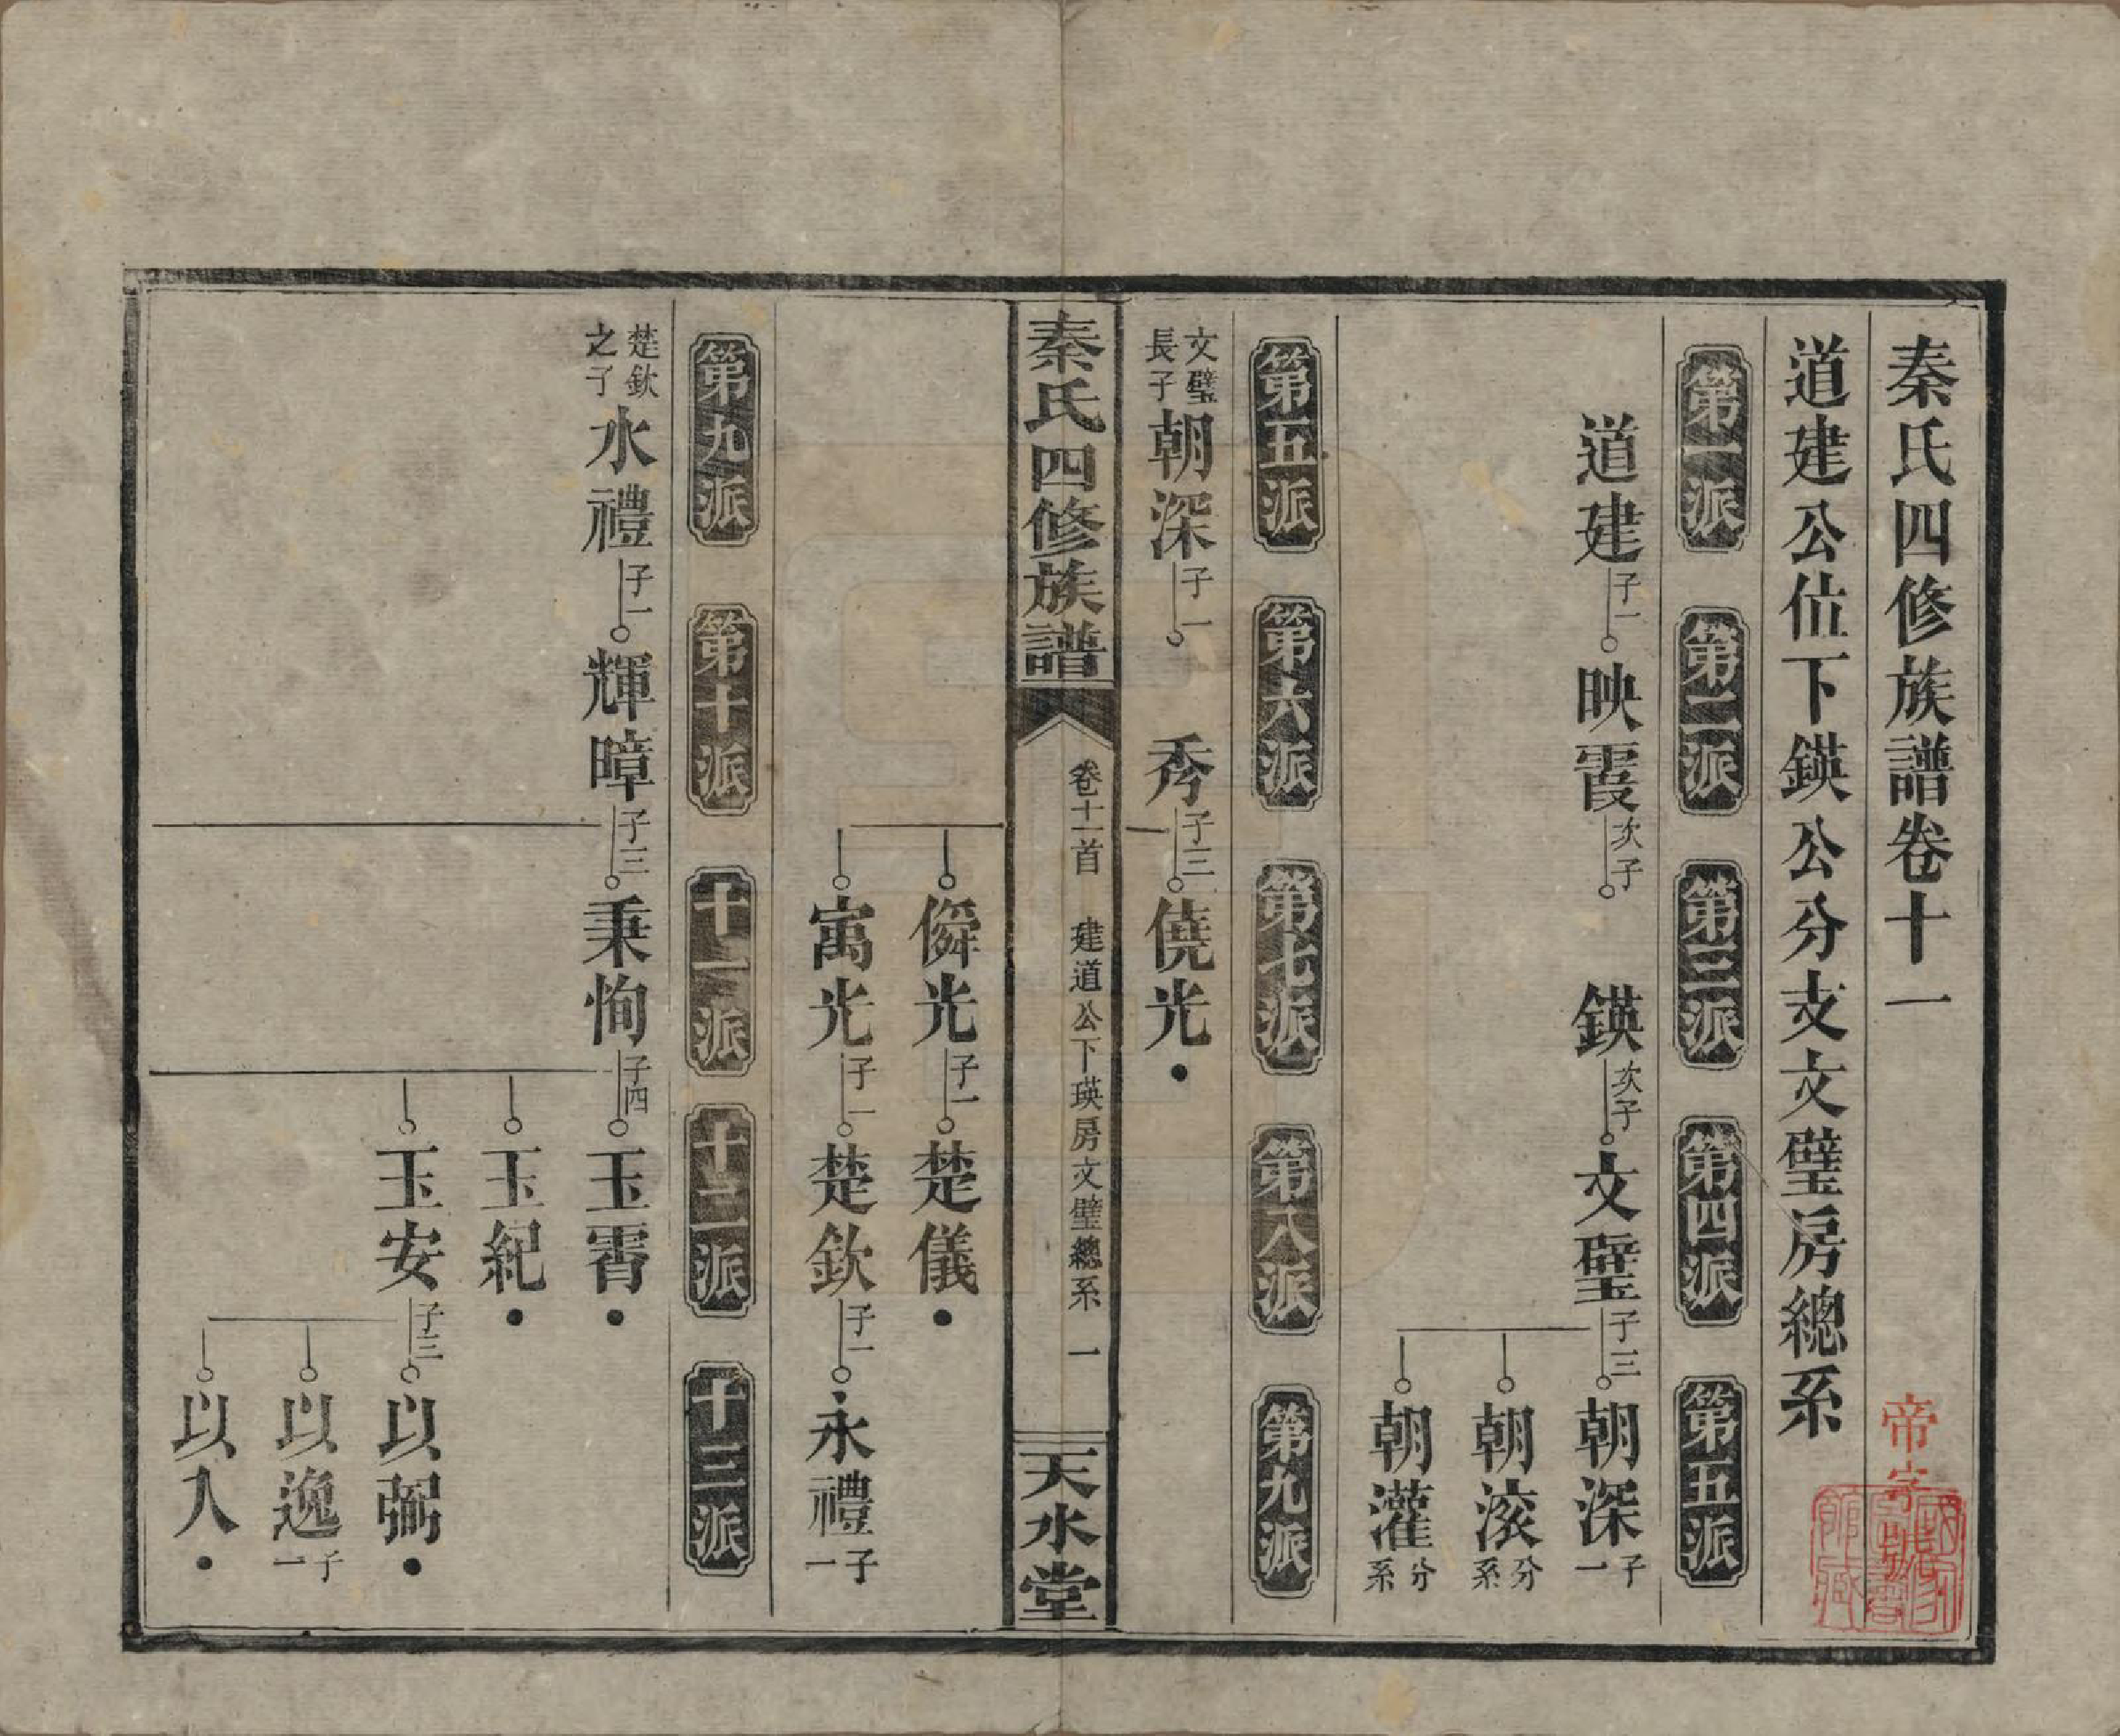 秦氏四修族譜卷十一
帝字號
道建公位下鍈公分支文璧房總系
第一派 第二派 第三派 第四派 第五派
道建 子一 映霞 次子 鍈 次子 文璧 子三 朝深 子一
朝滚 分系
朝灌 分系
第五派 第六派 第七派 第八派 第九派
文璧長子 朝深 子一 秀 子三 僥光
秦氏四修族譜 卷十一首 建道公下瑛房文璧總系 一 天水堂
僯光 子一 楚儀
寓光 子一 楚欽 子一 永禮 子一
第九派 第十派 十一派 十二派 十三派
楚欽之子 水禮 子一 輝暲 子三 秉恂 子四 玉霄
玉紀
玉安 子三 以弼
以逸 子一
以人